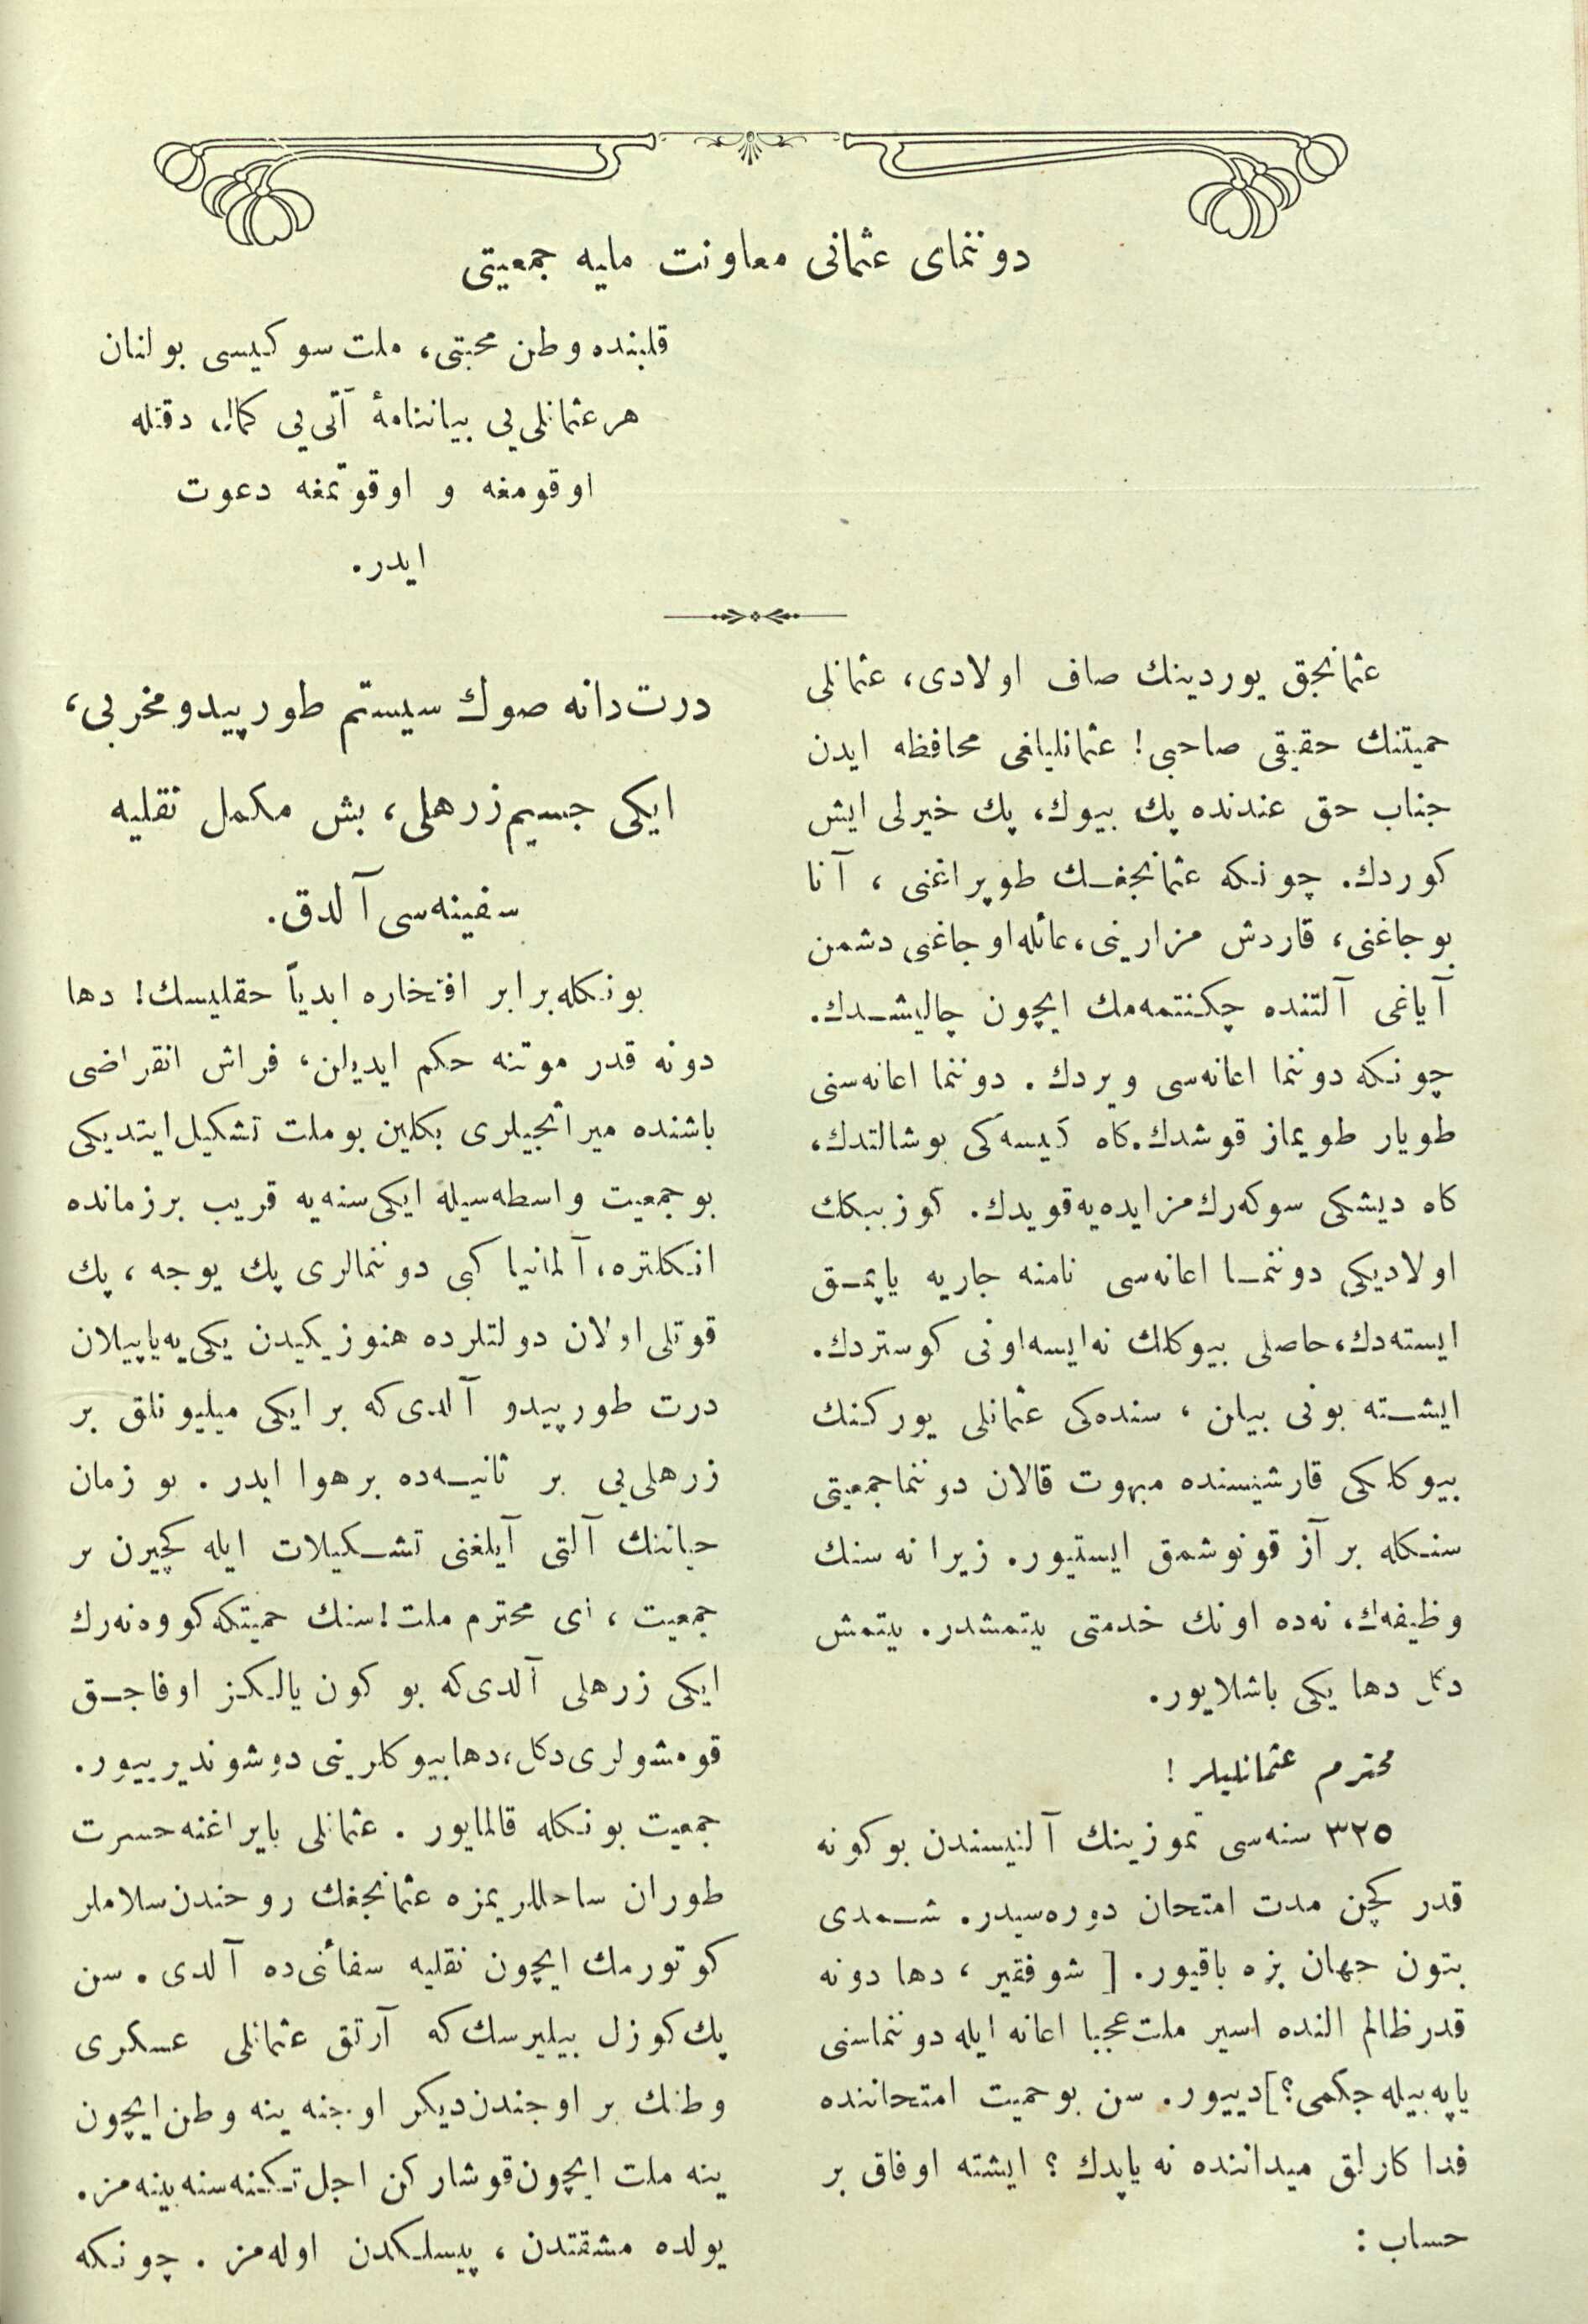 دوننمای عثمانی معاونت ملیه جمعیتی
قلبنده وطن محبتی، ملت سوكیسی بولنان
هر عثمانلی‌یی بیاننامهٔ آتی‌یی كمال دقتله
اوقومغه و اوقوتمغه دعوت
ایدر.
عثمانجق یوردینك صاف اولادی، عثمانلی
حمیتنك حقیقی صاحبی! عثمانلیلغی محافظه ایدن
جناب حق عندنده پك بیوك، پك خیرلی ایش
كوردك. چونكه عثمانجغك طوپراغنی، آنا
بوجاغنی، قاردش مزارینی، عائله اوجاغنی دشمن
آیاغی آلتنده چكنتمه‌مك ایچون چالیشدك.
چونكه دوننما اعانه‌سی ویردك. دوننما اعانه‌سنی
طویار طویماز قوشدك. كاه كیسه‌كی بوشالتدك،
كاه دیشكی سوكه‌رك مزایده‌یه قویدك. كوزببكك
اولادیكی دوننما اعانه‌سی نامنه جاریه یاپمق
ایسته‌دك، حاصلی بیوكلك نه ایسه اونی كوستردك.
ایشته بونی بیلن، سنده‌كی عثمانلی یوركنك
بیوكلكی قارشیسنده مبهوت قالان دوننما جمعیتی
سنكله بر آز قونوشمق ایستیور. زیرا نه سنك
وظیفه‌ك، نه‌ده اونك خدمتی یتمشدر. یتمش
دكل دها یكی باشلایور.
محترم عثمانلیلر!
۳۲۵ سنه‌سی تموزینك آلتیسندن بوكونه
قدر كچن مدت امتحان دوره‌سیدر. شمدی
بتون جهان بزه باقیور. [ شو فقیر، دها دونه
قدر ظالم النده اسیر ملت عجبا اعانه ایله دوننماسنی
یاپه‌بیله‌جكمی؟] دییور. سن بو حمیت امتحاننده
فداكارلق میداننده نه یاپدك؟ ایشته اوفاق بر
حساب:
درت دانه صوك سیستم طورپیدو مخربی،
ایكی جسیم زرهلی، بش مكمل نقلیه
سفینه‌سی آلدق.
بونكله برابر افتخاره ابدیاً حقلیسك! دها
دونه قدر موتنه حكم ایدیلن، فراش انقراضی
باشنده میراثجیلری بكلین بو ملت تشكیل ایتدیكی
بو جمعیت واسطه‌سیله ایكی سنه‌یه قریب بر زمانده
انكلتره، آلمانیا كبی دوننمالری پك یوجه، پك
قوتلی اولان دولتلرده هنوز یكیدن یكی‌یه یاپیلان
درت طورپیدو آلدی كه بر ایكی میلیونلق بر
زرهلی‌یی بر ثانیه‌ده برهوا ایدر. بو زمان
حیاتنك آلتی آیلغنی تشكیلات ایله كچیرن بر
جمعیت، ای محترم ملت! سنك حمیتكه كووه‌نه‌رك
ایكی زرهلی آلدی كه بو كون یالكز اوفاجق
قومشولری دكل، دها بیوكلرینی ده دوشوندیرییور.
جمعیت بونكله قالمایور. عثمانلی بایراغنه حسرت
طوران ساحللریمزه عثمانجغك روحندن سلاملر
كوتورمك ایچون نقلیه سفائنی ده آلدی. سن
پك كوزل بیلیرسك كه آرتق عثمانلی عسكری
وطنك بر اوجندن دیكر اوجنه ینه وطن ایچون
ینه ملت ایچون قوشاركن اجل تكنه‌سنه بینه‌مز.
یولده مشقتدن، پیسلكدن اوله‌مز. چونكه